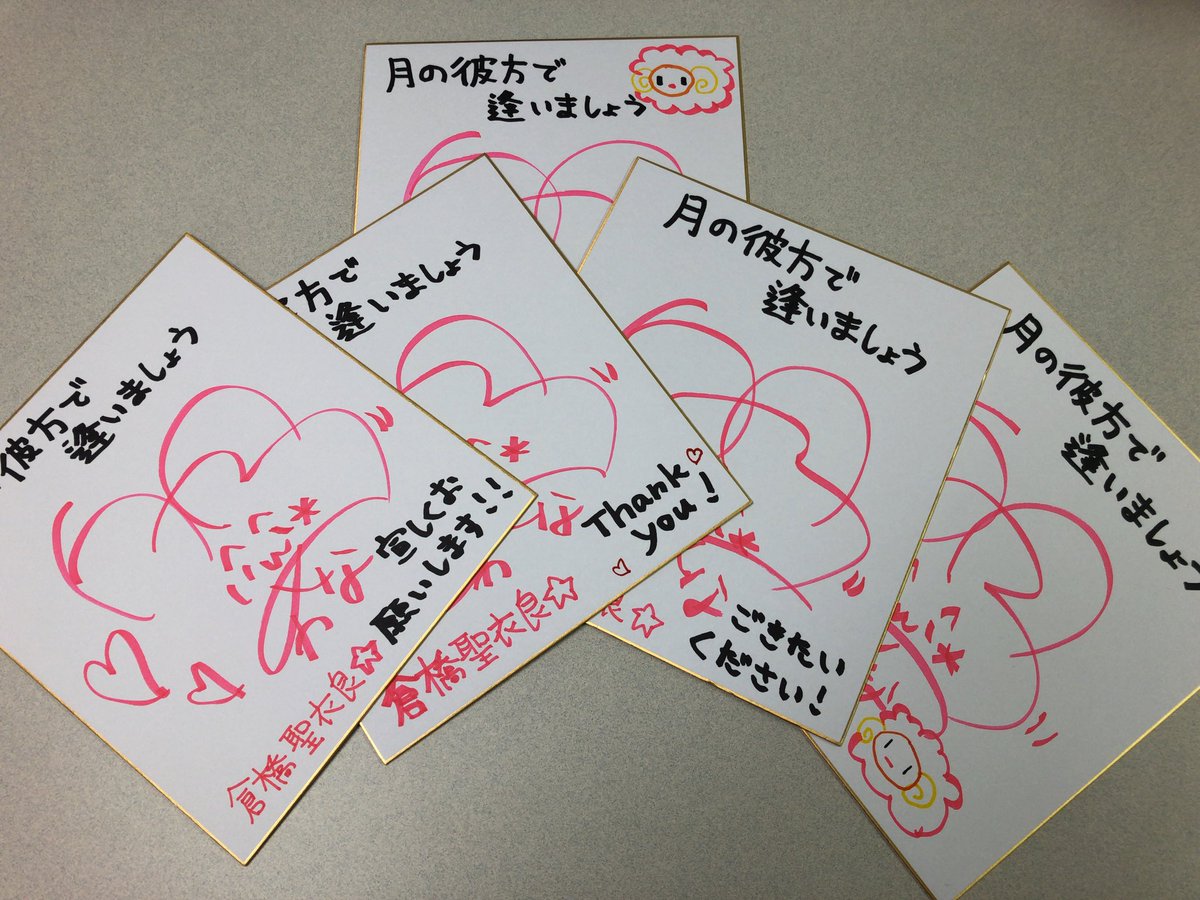 月の彼方で
逢いましょう
彼方で
逢いましょう
宣しくお
願いします!!
倉橋聖衣良☆
彼方で
逢いましょう
Thank
you!
倉橋聖衣良☆
月の彼方で
逢いましょう
ごきたい
ください!
月の彼方で
逢いましょう